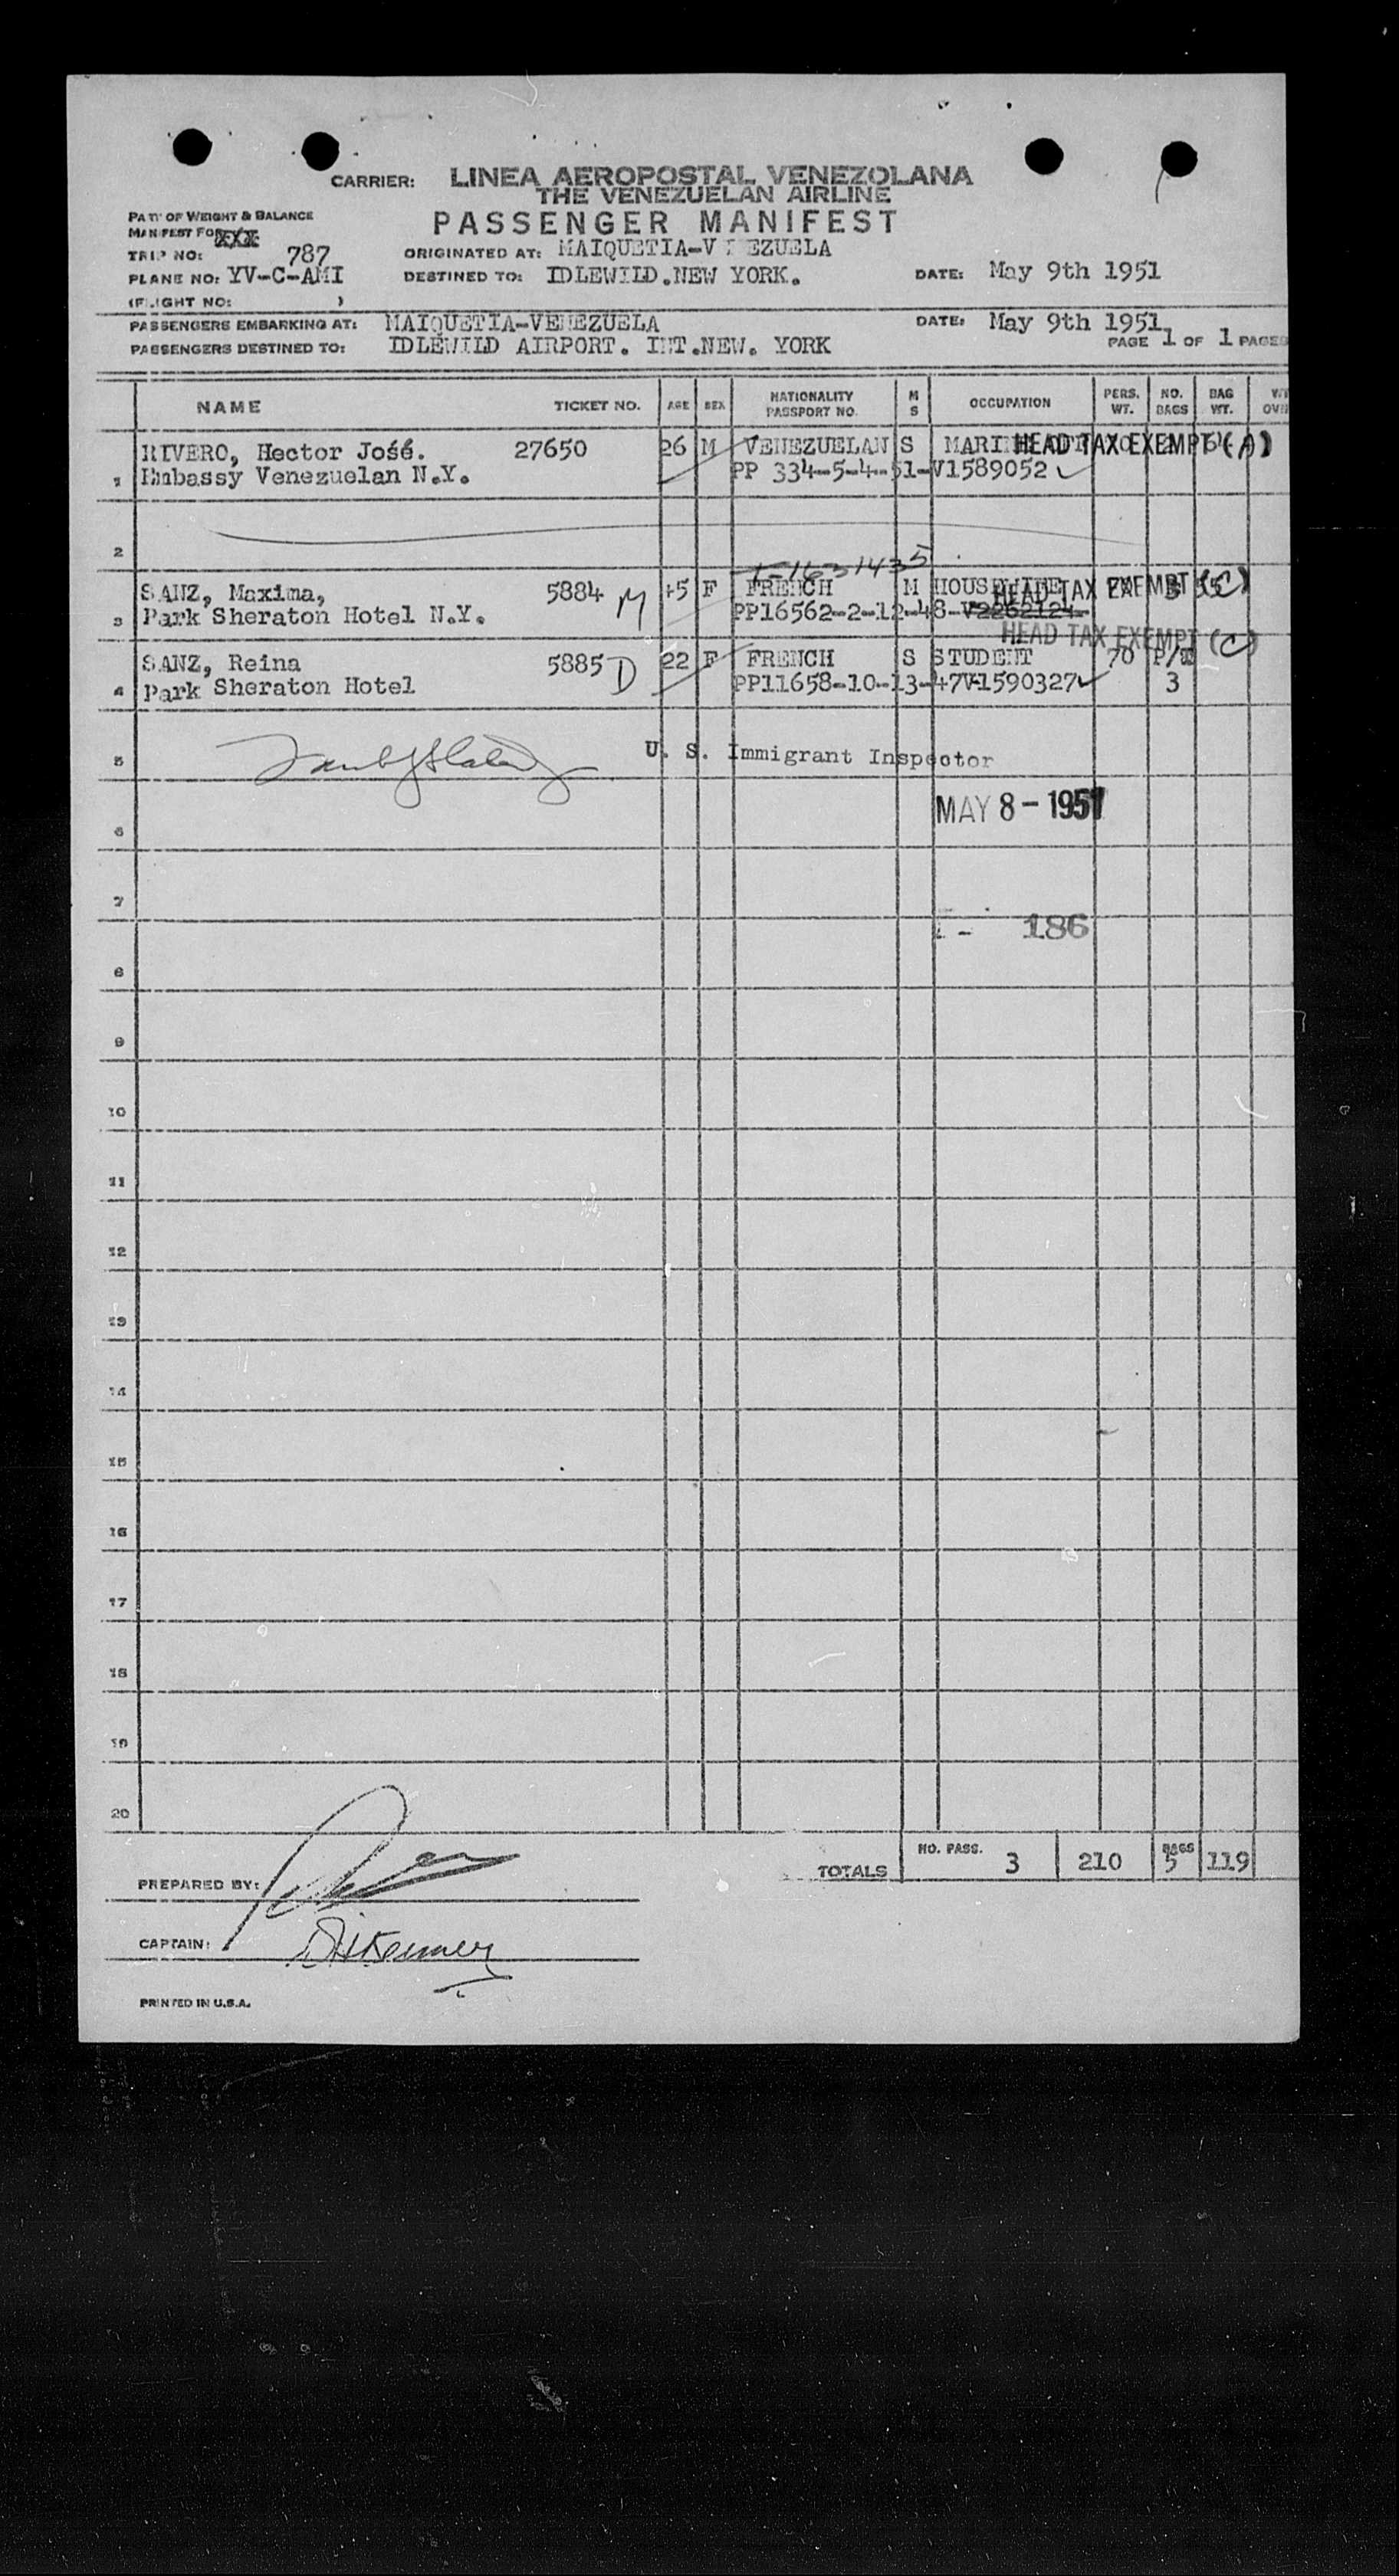 CARRIER: LINEA AEROPOSTAL VENEZOLANA
THE VENEZUELAN AIRLINE
PASSENGER MANIFEST
PART OF WEIGHT & BALANCE
MANIFEST FOR XXX
TRIP NO: 787
PLANE NO: YV-C-AMI
(FLIGHT NO: )
ORIGINATED AT: MAIQUETIA-V EZUELA
DESTINED TO: IDLEWILD.NEW YORK.
DATE: May 9th 1951
PASSENGERS EMBARKING AT: MAIQUETIA-VENEZUELA DATE: May 9th 1951
PASSENGERS DESTINED TO: IDLEWILD AIRPORT. INT.NEW. YORK PAGE 1 OF 1 PAGES
NAME TICKET NO. AGE SEX NATIONALITY PASSPORT NO. M S OCCUPATION PERS. WT. NO. BAGS BAG WT.
RIVERO, Hector José. 27650 26 M VENEZUELAN S HEAD TAX EXEMPT (A)
1 Embassy Venezuelan N.Y. PP 334-5-4-51-V1589052
2
SANZ, Maxima, 5884 M 45 F FRENCH M HOUSEWIFE HEAD TAX EXEMPT (C)
3 Park Sheraton Hotel N.Y. PP16562-2-12-48-V2262124
HEAD TAX EXEMPT (C)
SANZ, Reina 5885 D 22 F FRENCH S STUDENT 70 P/T
4 Park Sheraton Hotel PP11658-10-13-47V-1590327 3
5 U. S. Immigrant Inspector
MAY 8 - 1951
6
7
186
8
9
10
11
12
13
14
15
16
17
18
19
20
TOTALS NO. PASS. 3 210 BAGS 5 119
PREPARED BY:
CAPTAIN:
PRINTED IN U.S.A.